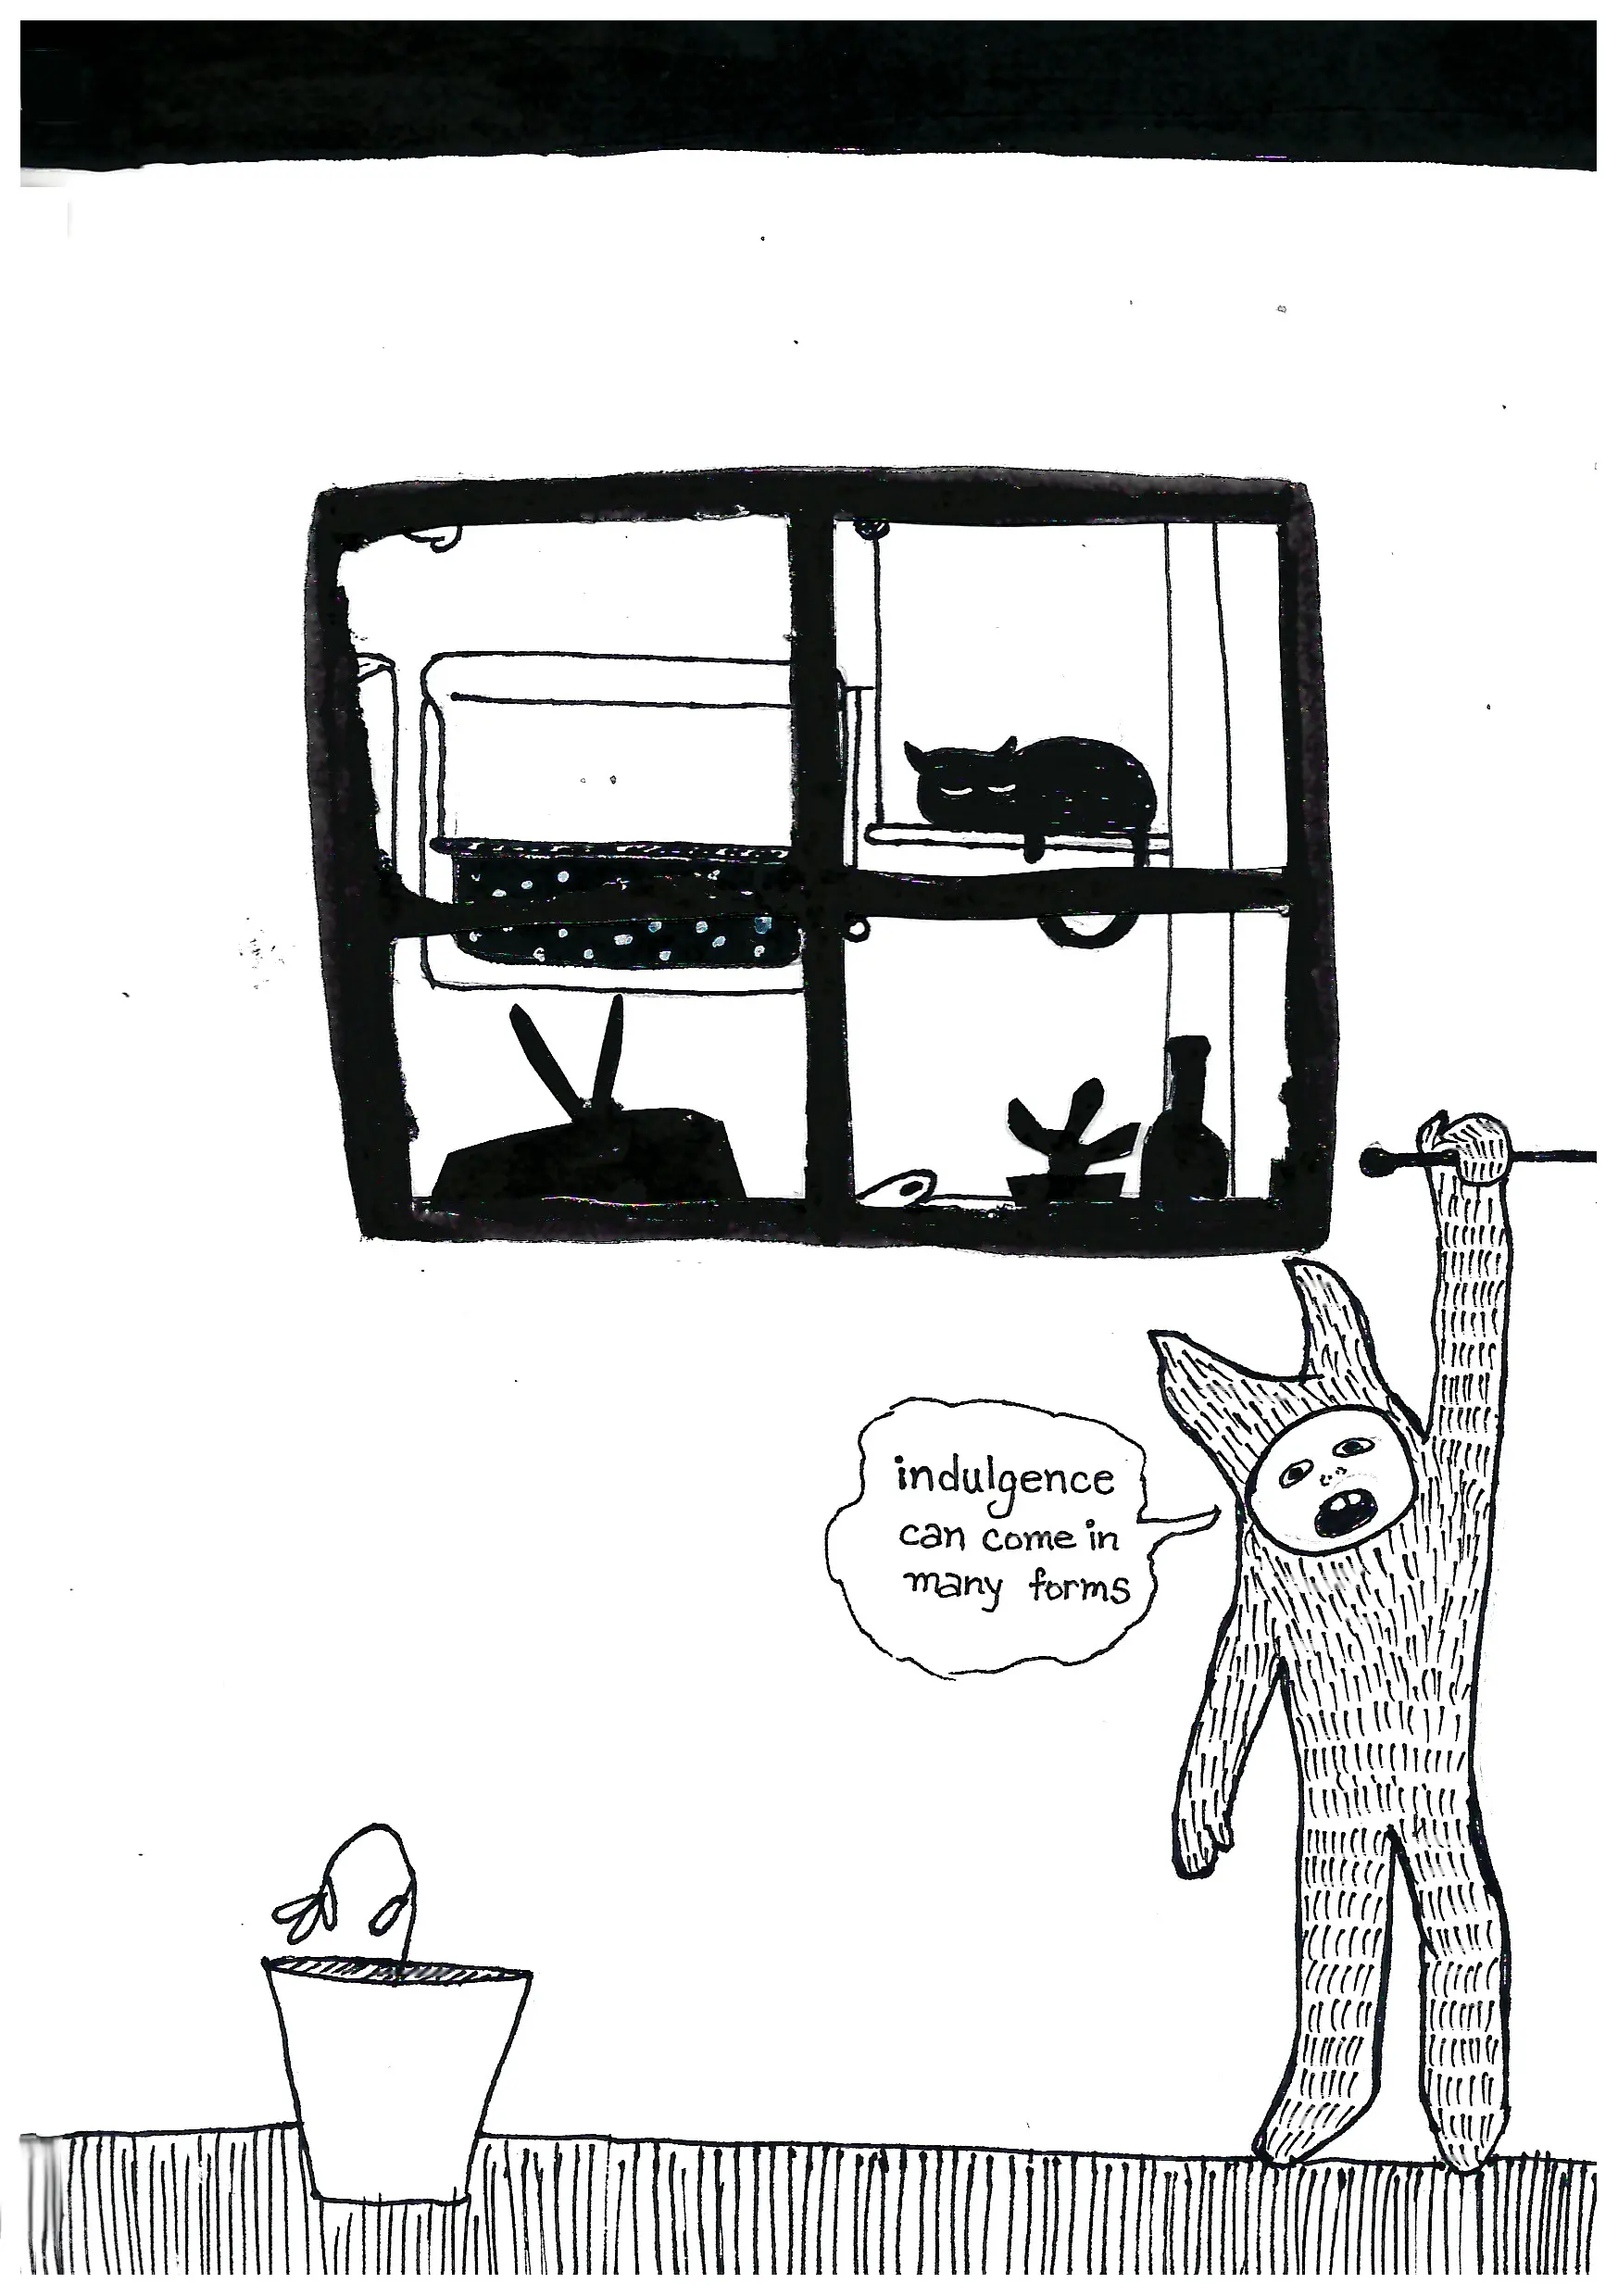 indulgence
can come in
many forms